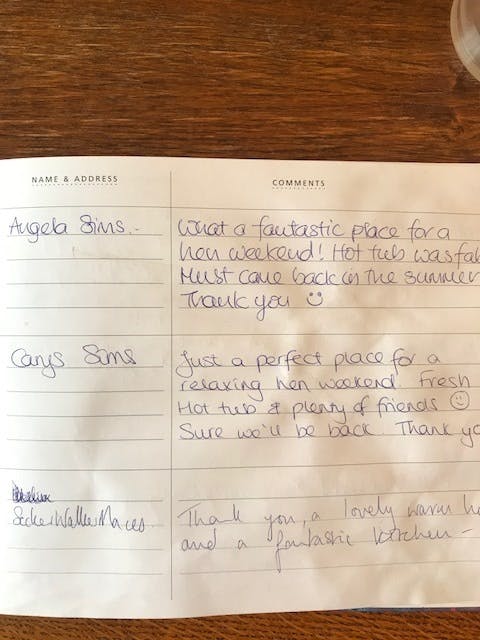 NAME & ADDRESS
COMMENTS
Angela Sims.-
What a fantastic place for a
hen weekend! Hot tub was fab
Must come back in the summer
Thank you ☺
Carys Sims
Just a perfect place for a
relaxing hen weekend Fresh
Hot tub & plenty of friends ☺
Sure we'll be back. Thank yo
Thank you, a lovely warm ho
and a fantastic kitchen -